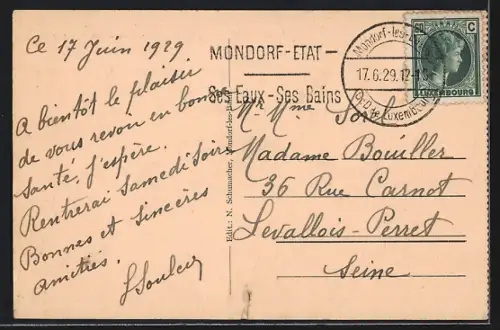 Ce 17 Juin 1929
A bientôt le plaisir
de vous revoir en bonne
santé. J'espère.
Rentrerai Samedi Soir
Bonnes et Sincères
amitiés.
MONDORF-ETAT
Ses Eaux - Ses Bains
Mondorf-les-
17.6.29.12-
G.-D. de Luxembourg
C
LUXEMBOURG
Edit.: N. Schumacher, Mondorf-les-Bains
Mr Mme
Madame Bouiller
36 Rue Carnot
Levallois-Perret
Seine